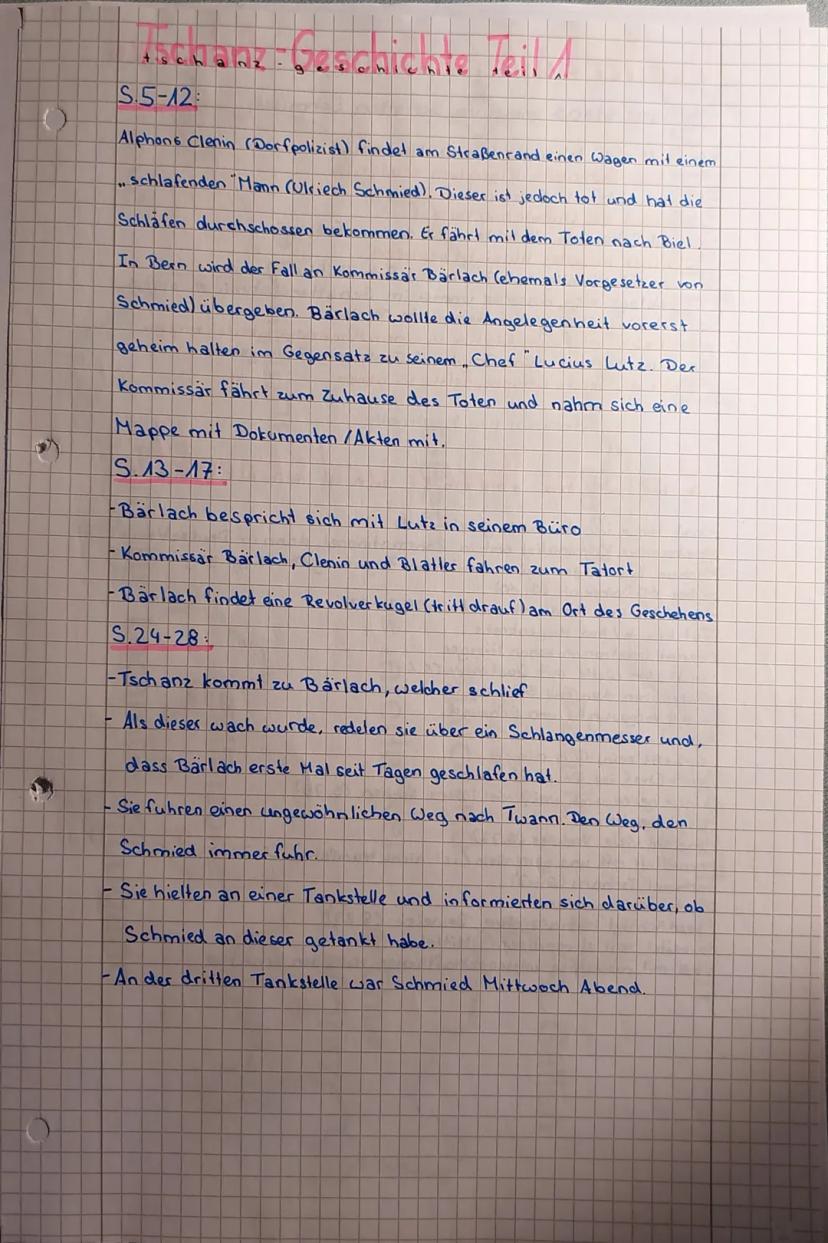 Tschanz-Geschichte Teil 1
tschanz-geschichte teil 1
S.5-12:
Alphons Clenin (Dorfpolizist) findet am Straßenrand einen Wagen mit einem
„schlafenden" Mann (Ulriech Schmied). Dieser ist jedoch tot und hat die
Schläfen durchschossen bekommen. Er fährt mit dem Toten nach Biel.
In Bern wird der Fall an Kommissär Bärlach (ehemals Vorgesetzer von
Schmied) übergeben. Bärlach wollte die Angelegenheit vorerst
geheim halten im Gegensatz zu seinem „Chef" Lucius Lutz. Der
Kommissär fährt zum Zuhause des Toten und nahm sich eine
Mappe mit Dokumenten /Akten mit.
S.13-17:
-Bärlach bespricht sich mit Lutz in seinem Büro
-Kommissär Bärlach, Clenin und Blatter fahren zum Tatort
-Bärlach findet eine Revolverkugel (tritt drauf) am Ort des Geschehens
S.24-28:
-Tschanz kommt zu Bärlach, welcher schlief
- Als dieser wach wurde, redeten sie über ein Schlangenmesser und,
dass Bärlach erste Mal seit Tagen geschlafen hat.
- Sie fuhren einen ungewöhnlichen Weg nach Twann. Den Weg, den
Schmied immer fuhr.
- Sie hielten an einer Tankstelle und informierten sich darüber, ob
Schmied an dieser getankt habe.
-An der dritten Tankstelle war Schmied Mittwoch Abend.